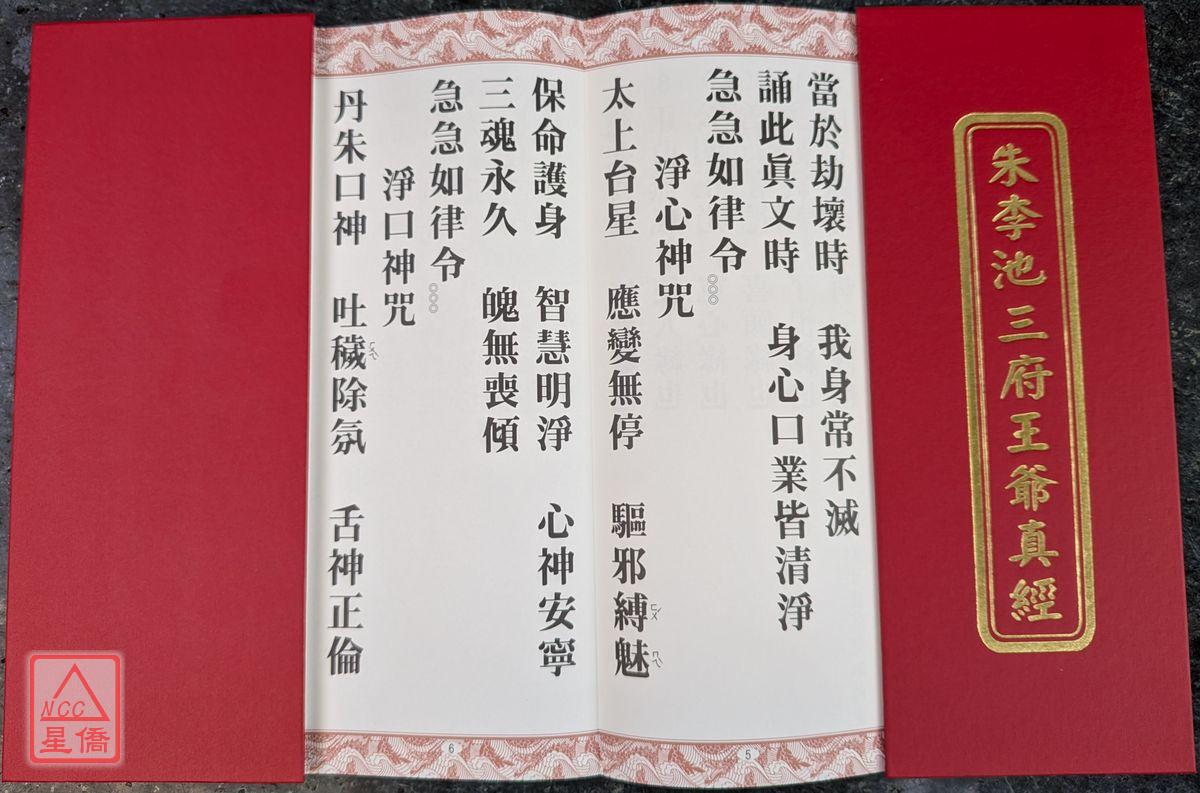 朱李池三府王爺真經
當於劫壞時　我身常不滅
誦此眞文時　身心口業皆清淨
急急如律令○○○
淨心神咒
太上台星　應變無停　驅邪縛魅
5
保命護身　智慧明淨　心神安寧
三魂永久　魄無喪傾
急急如律令○○○
淨口神咒
丹朱口神　吐穢除氛　舌神正倫
6
NCC
星僑